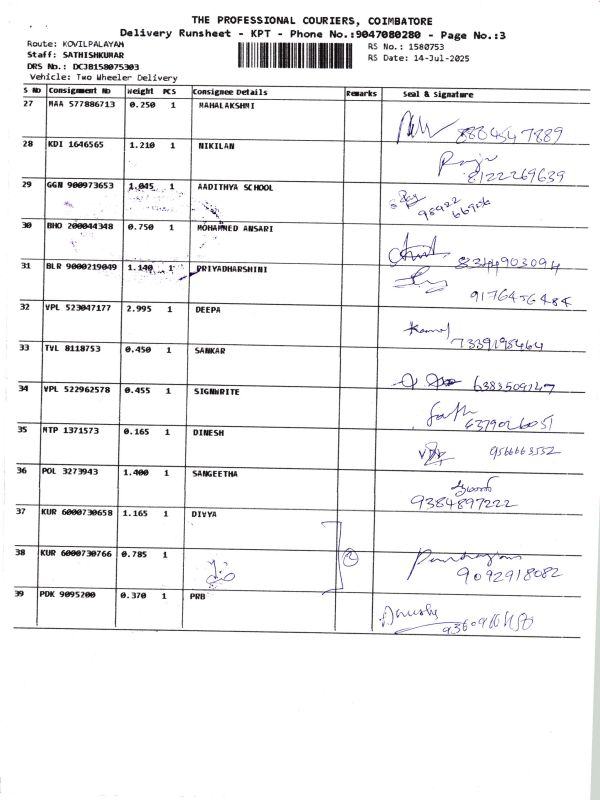 THE PROFESSIONAL COURIERS, COIMBATORE
Delivery Runsheet - KPT - Phone No.:9047080280 - Page No.:3
Route: KOVILPALAYAM
RS No.: 1580753
Staff: SATHISHKUMAR
RS Date: 14-Jul-2025
DRS No.: DCJB158075303
Vehicle: Two Wheeler Delivery
S No Consignment No Weight PCS Consignee Details Remarks Seal & Signature
27 MAA 577886713 0.250 1 MAHALAKSHMI
28 KDI 1646565 1.210 1 NIKILAN
8122269639
29 GGN 900973653 1.045 1 AADITHYA SCHOOL
30 BHO 200044348 0.750 1 MOHAMMED ANSARI
8344903094
31 BLR 9000219049 1.140 1 PRIYADHARSHINI
9176456484
32 VPL 523047177 2.995 1 DEEPA
7339198464
33 TVL 8118753 0.450 1 SANKAR
6383509147
34 VPL 522962578 0.455 1 SIGNWRITE
6379026051
35 MTP 1371573 0.165 1 DINESH
9566663552
36 POL 3273943 1.400 1 SANGEETHA
9384897222
37 KUR 6000730658 1.165 1 DIVYA
38 KUR 6000730766 0.785 1
2
9092918082
39 PDK 9095200 0.370 1 PRB